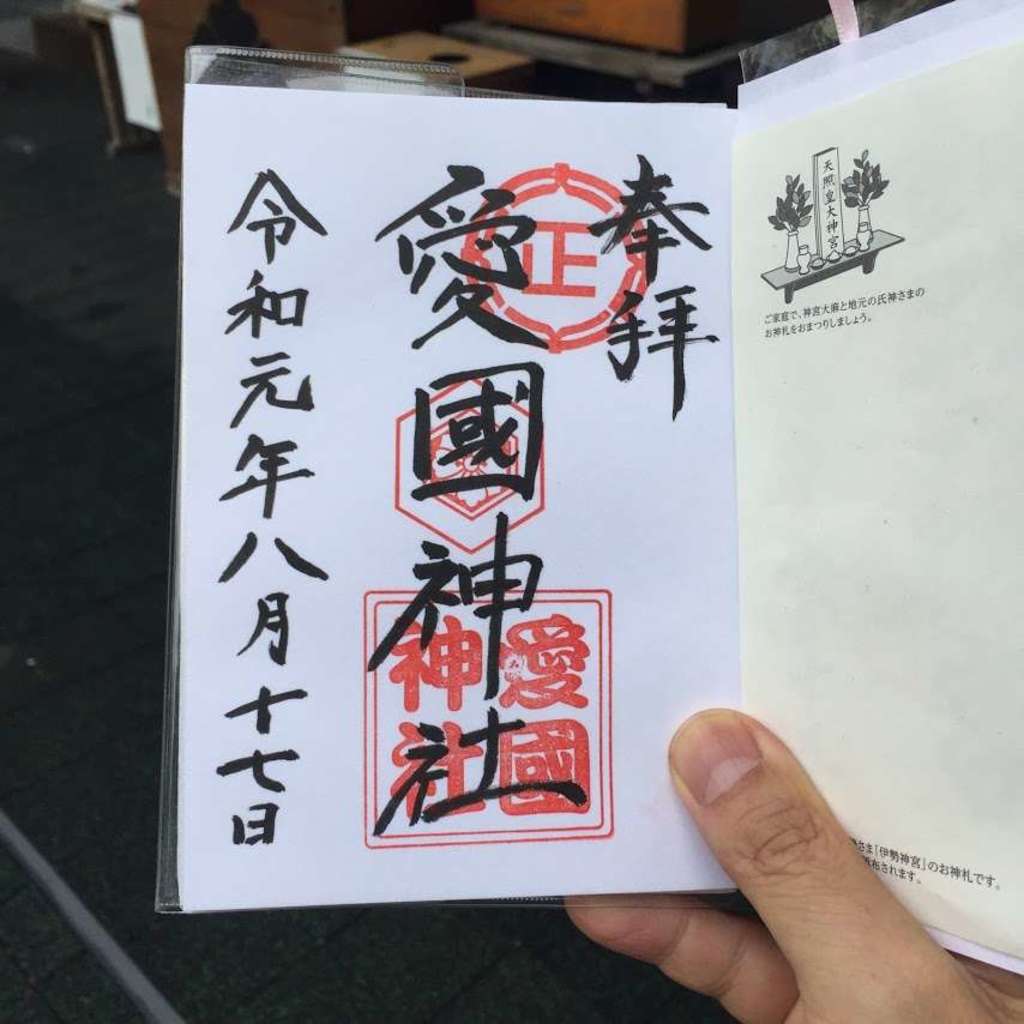 奉拝
愛國神社
令和元年八月十七日
正
愛國
神社
天照皇大神宮
ご家庭で、神宮大麻と地元の氏神さまの
お神札をおまつりしましょう。
さま「伊勢神宮」のお神札です。
布されます。